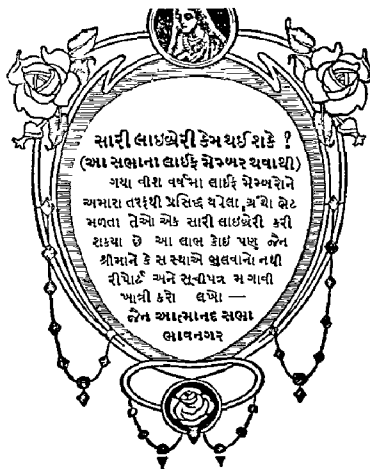 સારી લાઇબ્રેરી કેમ થઈ શકે !
(આ સભાના લાઈફ મેમ્બર થવાથી)
ગયા વીશ વર્ષમા લાઈફ મેમ્બરોને
અમારા તરફથી પ્રસિદ્ધ થયેલા, ગ્રંથો ભેટ
મળતા તેઓ એક સારી લાઇબ્રેરી કરી
શક્યા છે આ લાભ કોઇ પણ જૈન
શ્રીમાને કે સ સ્થાએ ભુલવાનો નથી
રીપોર્ટ અને સૂચીપત્ર મ ગાવી
ખાત્રી કરો લખો —
જૈન આત્માનદ સભા
ભાવનગર